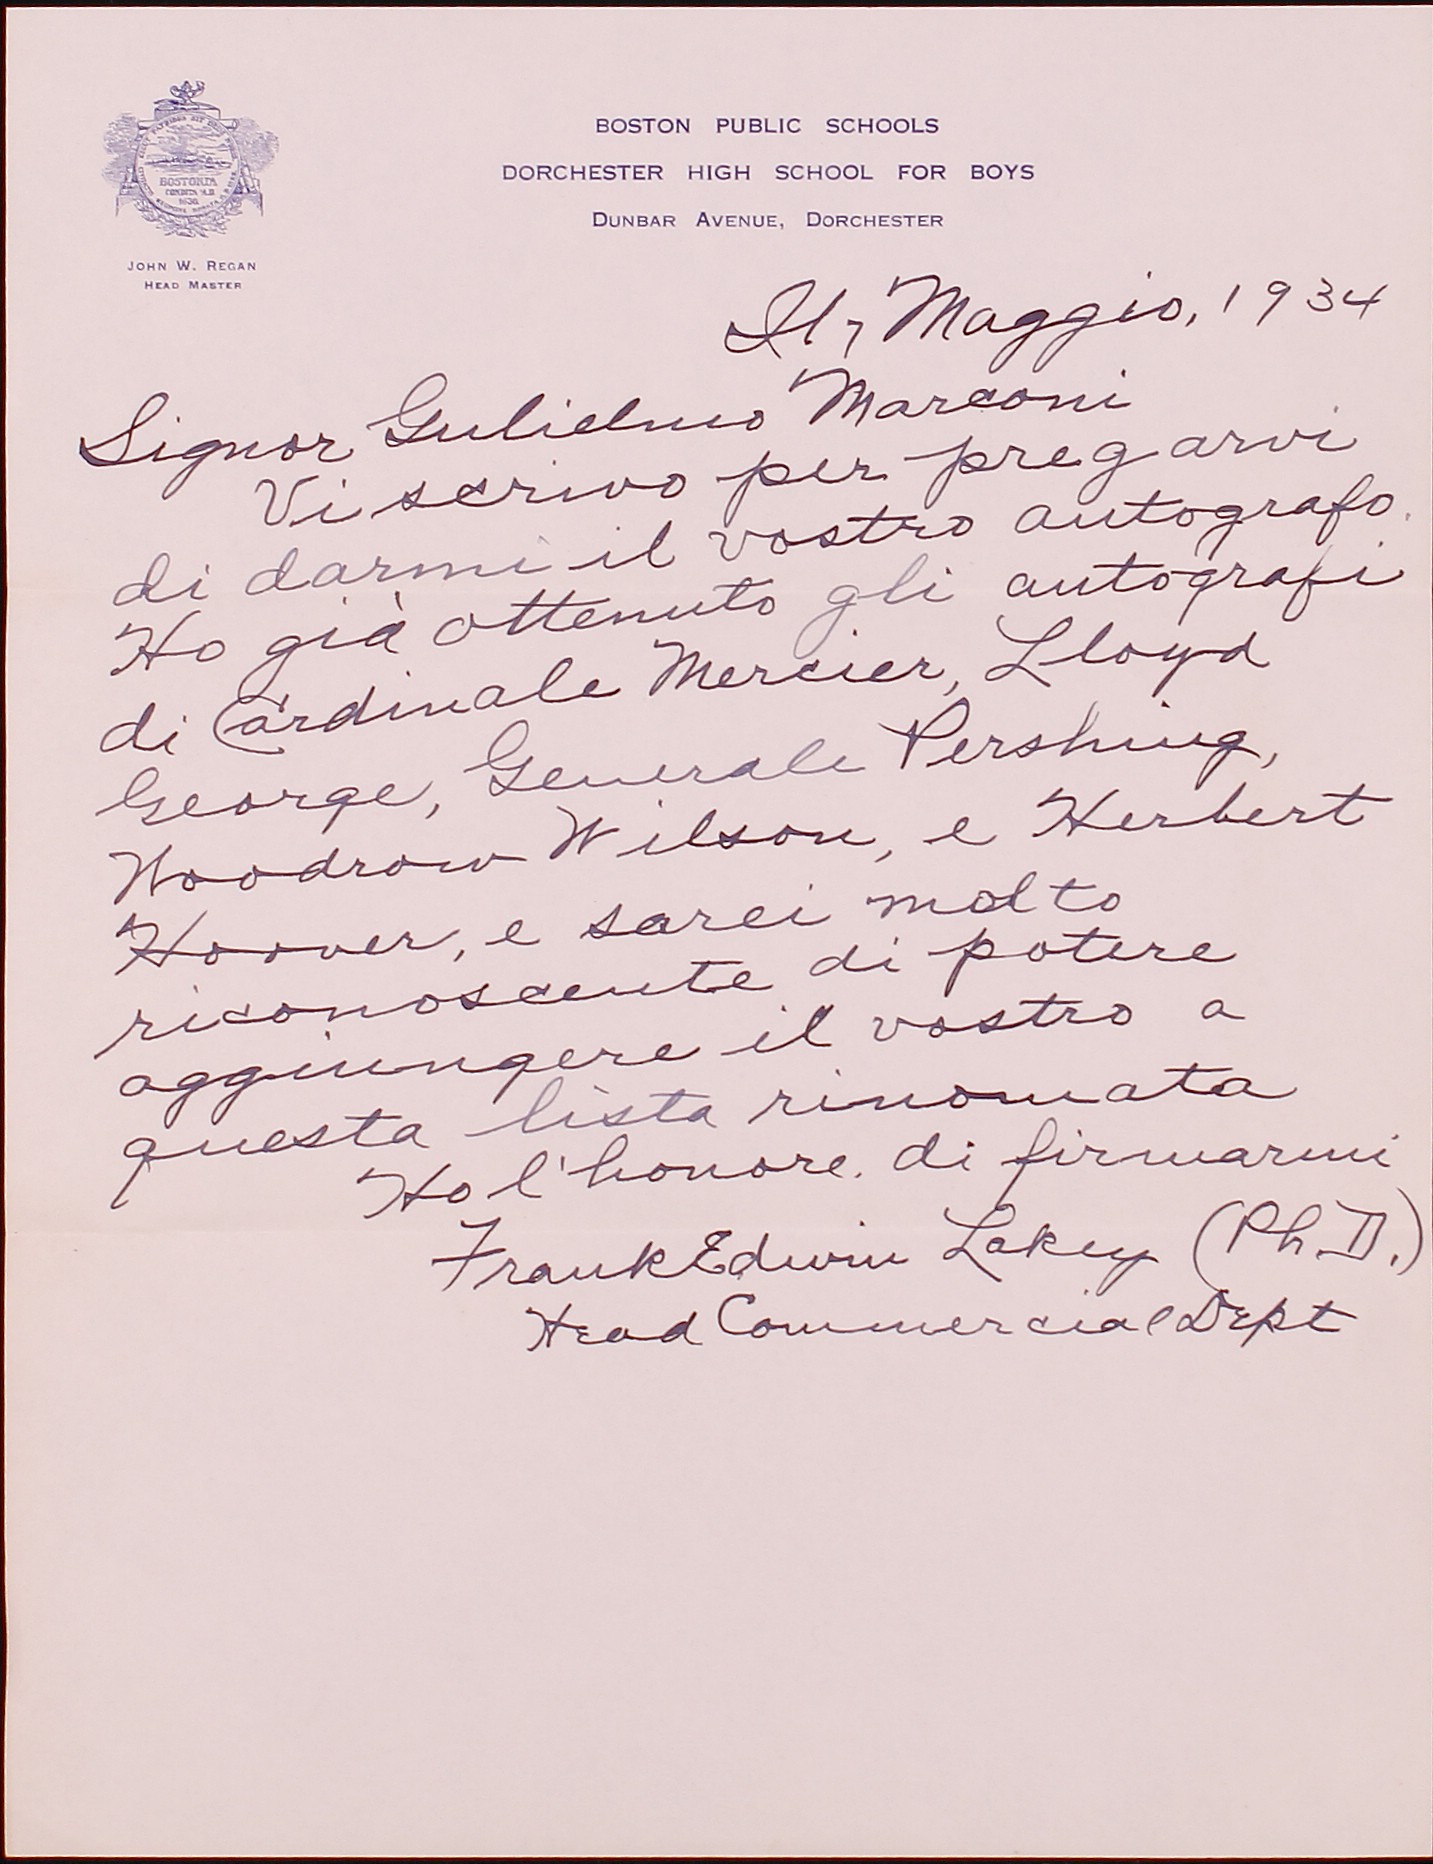 BOSTON PUBLIC SCHOOLS
DORCHESTER HIGH SCHOOL FOR BOYS
DUNBAR AVENUE, DORCHESTER
BOSTONIA
CONDITA A.D.
1630.
JOHN W. REGAN
HEAD MASTER
Il 7 Maggio, 1934
Signor Gulielmo Marconi
Vi scrivo per pregarvi
di darmi il vostro autografo.
Ho già ottenuto gli autografi
di Cardinale Mercier, Lloyd
George, Generale Pershing,
Woodrow Wilson, e Herbert
Hoover, e sarei molto
riconoscente di potere
aggiungere il vostro a
questa lista rinomata
Ho l'honore di firmarmi
Frank Edwin Lakey (Ph.D.)
Head Commercial Dept